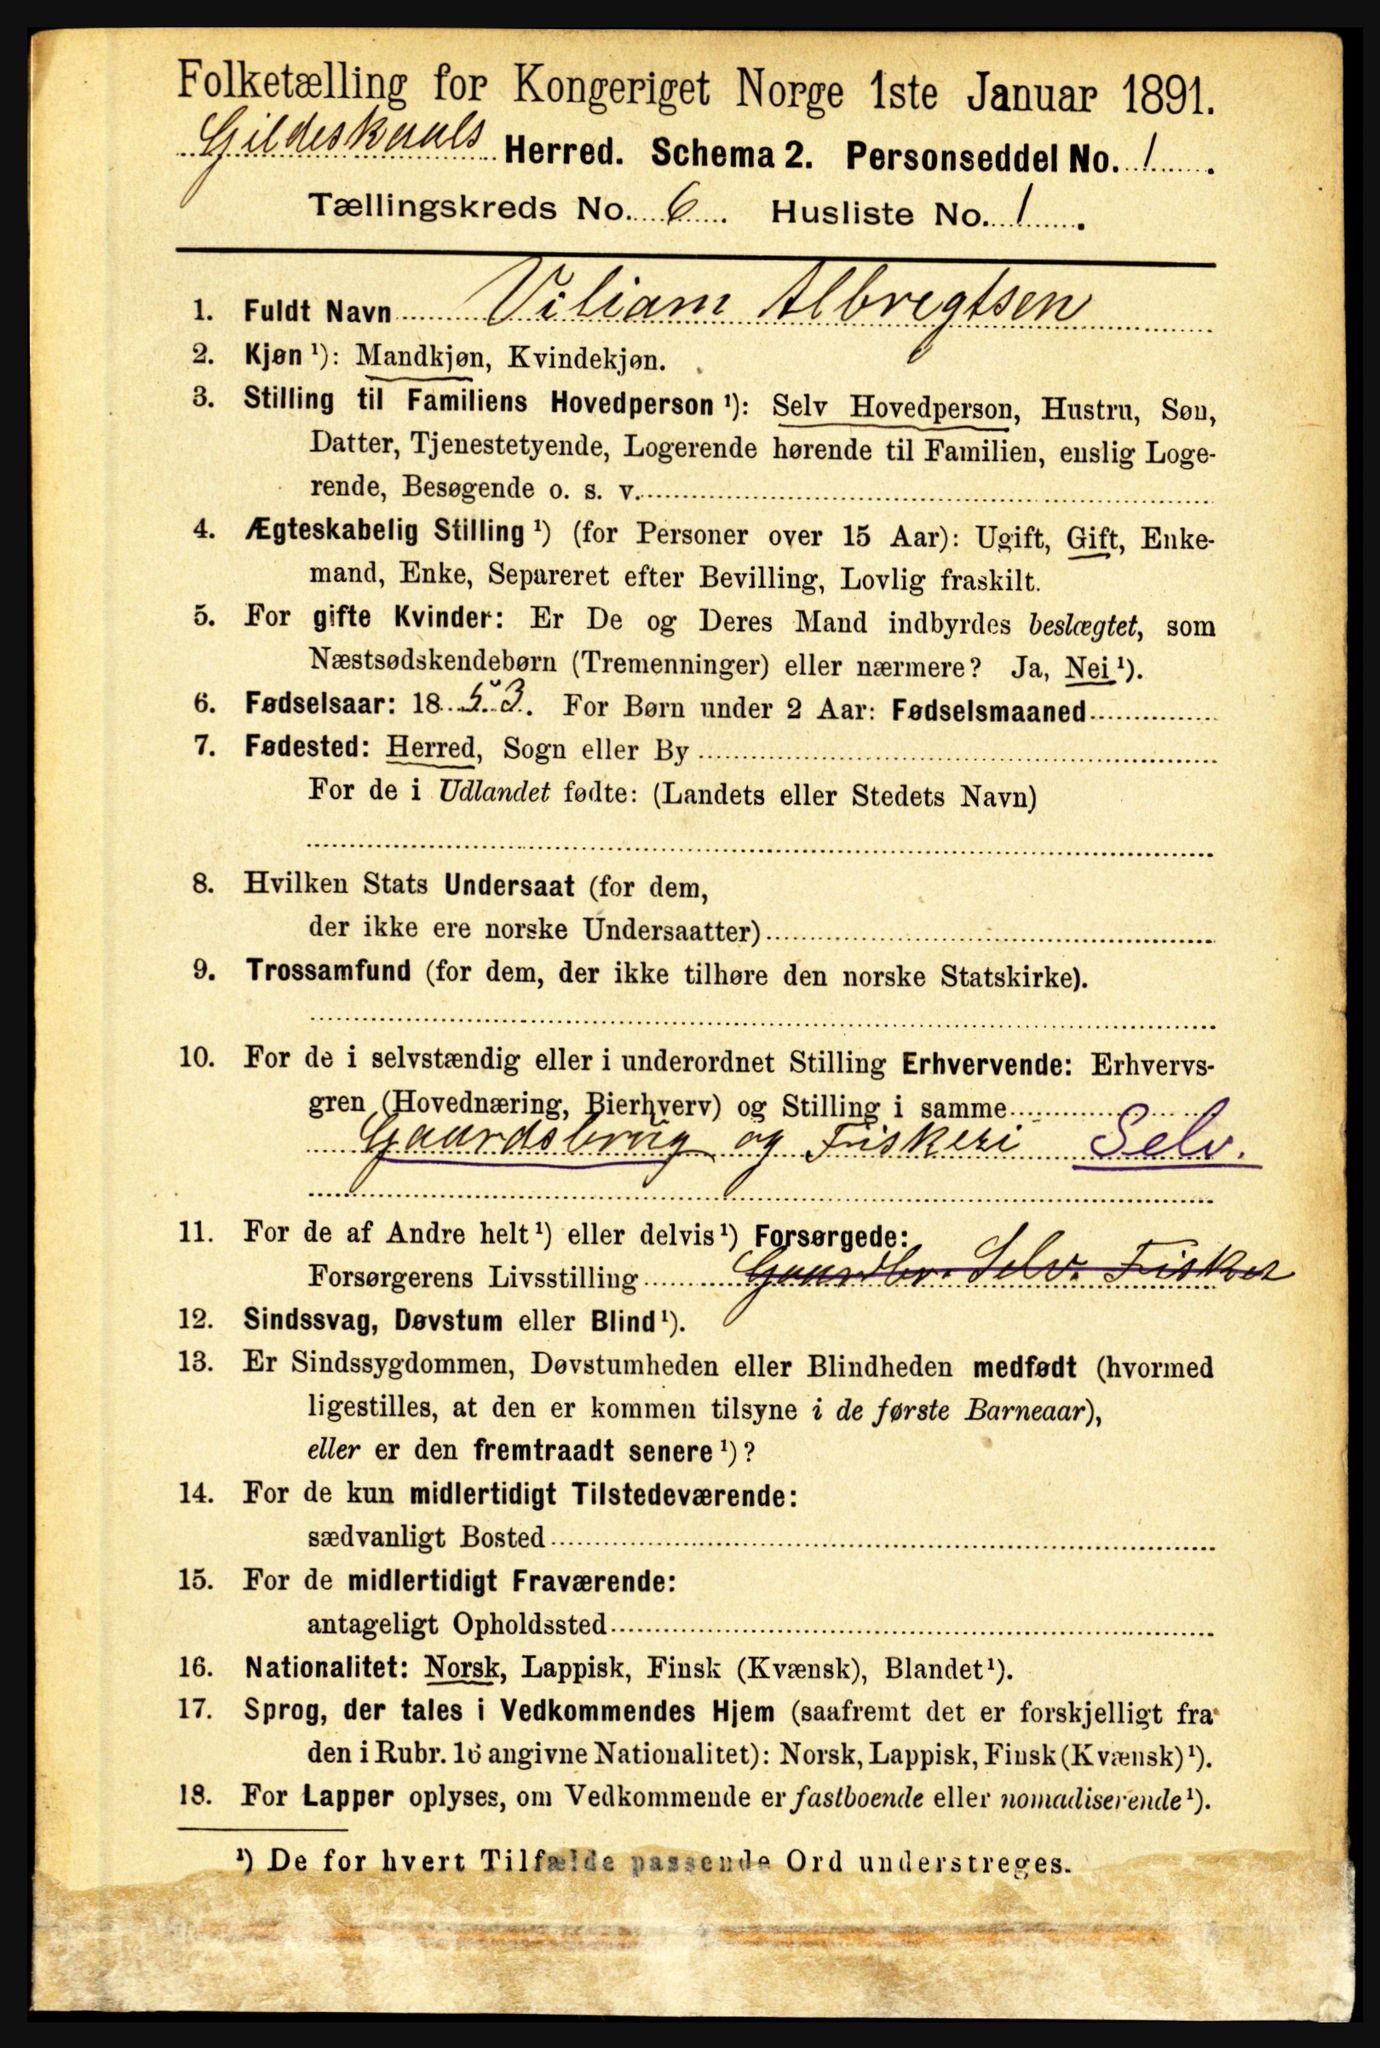 Folketælling for Kongeriget Norge 1ste Januar 1891.
Gildeskaals Herred. Schema 2. Personseddel No. 1.
Tællingskreds No. 6. Husliste No. 1.
1. Fuldt Navn Viliam Albregtsen
2. Kjøn¹): Mandkjøn, Kvindekjøn.
3. Stilling til Familiens Hovedperson¹): Selv Hovedperson, Hustru, Søn,
Datter, Tjenestetyende, Logerende hørende til Familien, enslig Loge-
rende, Besøgende o. s. v.
4. Ægteskabelig Stilling¹) (for Personer over 15 Aar): Ugift, Gift, Enke-
mand, Enke, Separeret efter Bevilling, Lovlig fraskilt.
5. For gifte Kvinder: Er De og Deres Mand indbyrdes beslægtet, som
Næstsødskendebørn (Tremenninger) eller nærmere? Ja, Nei¹).
6. Fødselsaar: 1853. For Børn under 2 Aar: Fødselsmaaned
7. Fødested: Herred, Sogn eller By
For de i Udlandet fødte: (Landets eller Stedets Navn)
8. Hvilken Stats Undersaat (for dem,
der ikke ere norske Undersaatter)
9. Trossamfund (for dem, der ikke tilhøre den norske Statskirke).
10. For de i selvstændig eller i underordnet Stilling Erhvervende: Erhvervs-
gren (Hovednæring, Bierhverv) og Stilling i samme
Gaardsbrug og Fiskeri Selv.
11. For de af Andre helt¹) eller delvis¹) Forsørgede:
Forsørgerens Livsstilling Gaardbr. Selv. Fisker
12. Sindssvag, Døvstum eller Blind¹).
13. Er Sindssygdommen, Døvstumheden eller Blindheden medfødt (hvormed
ligestilles, at den er kommen tilsyne i de første Barneaar),
eller er den fremtraadt senere¹)?
14. For de kun midlertidigt Tilstedeværende:
sædvanligt Bosted
15. For de midlertidigt Fraværende:
antageligt Opholdssted
16. Nationalitet: Norsk, Lappisk, Finsk (Kvænsk), Blandet¹).
17. Sprog, der tales i Vedkommendes Hjem (saafremt det er forskjelligt fra
den i Rubr. 16 angivne Nationalitet): Norsk, Lappisk, Finsk (Kvænsk)¹).
18. For Lapper oplyses, om Vedkommende er fastboende eller nomadiserende¹).
¹) De for hvert Tilfælde passende Ord understreges.